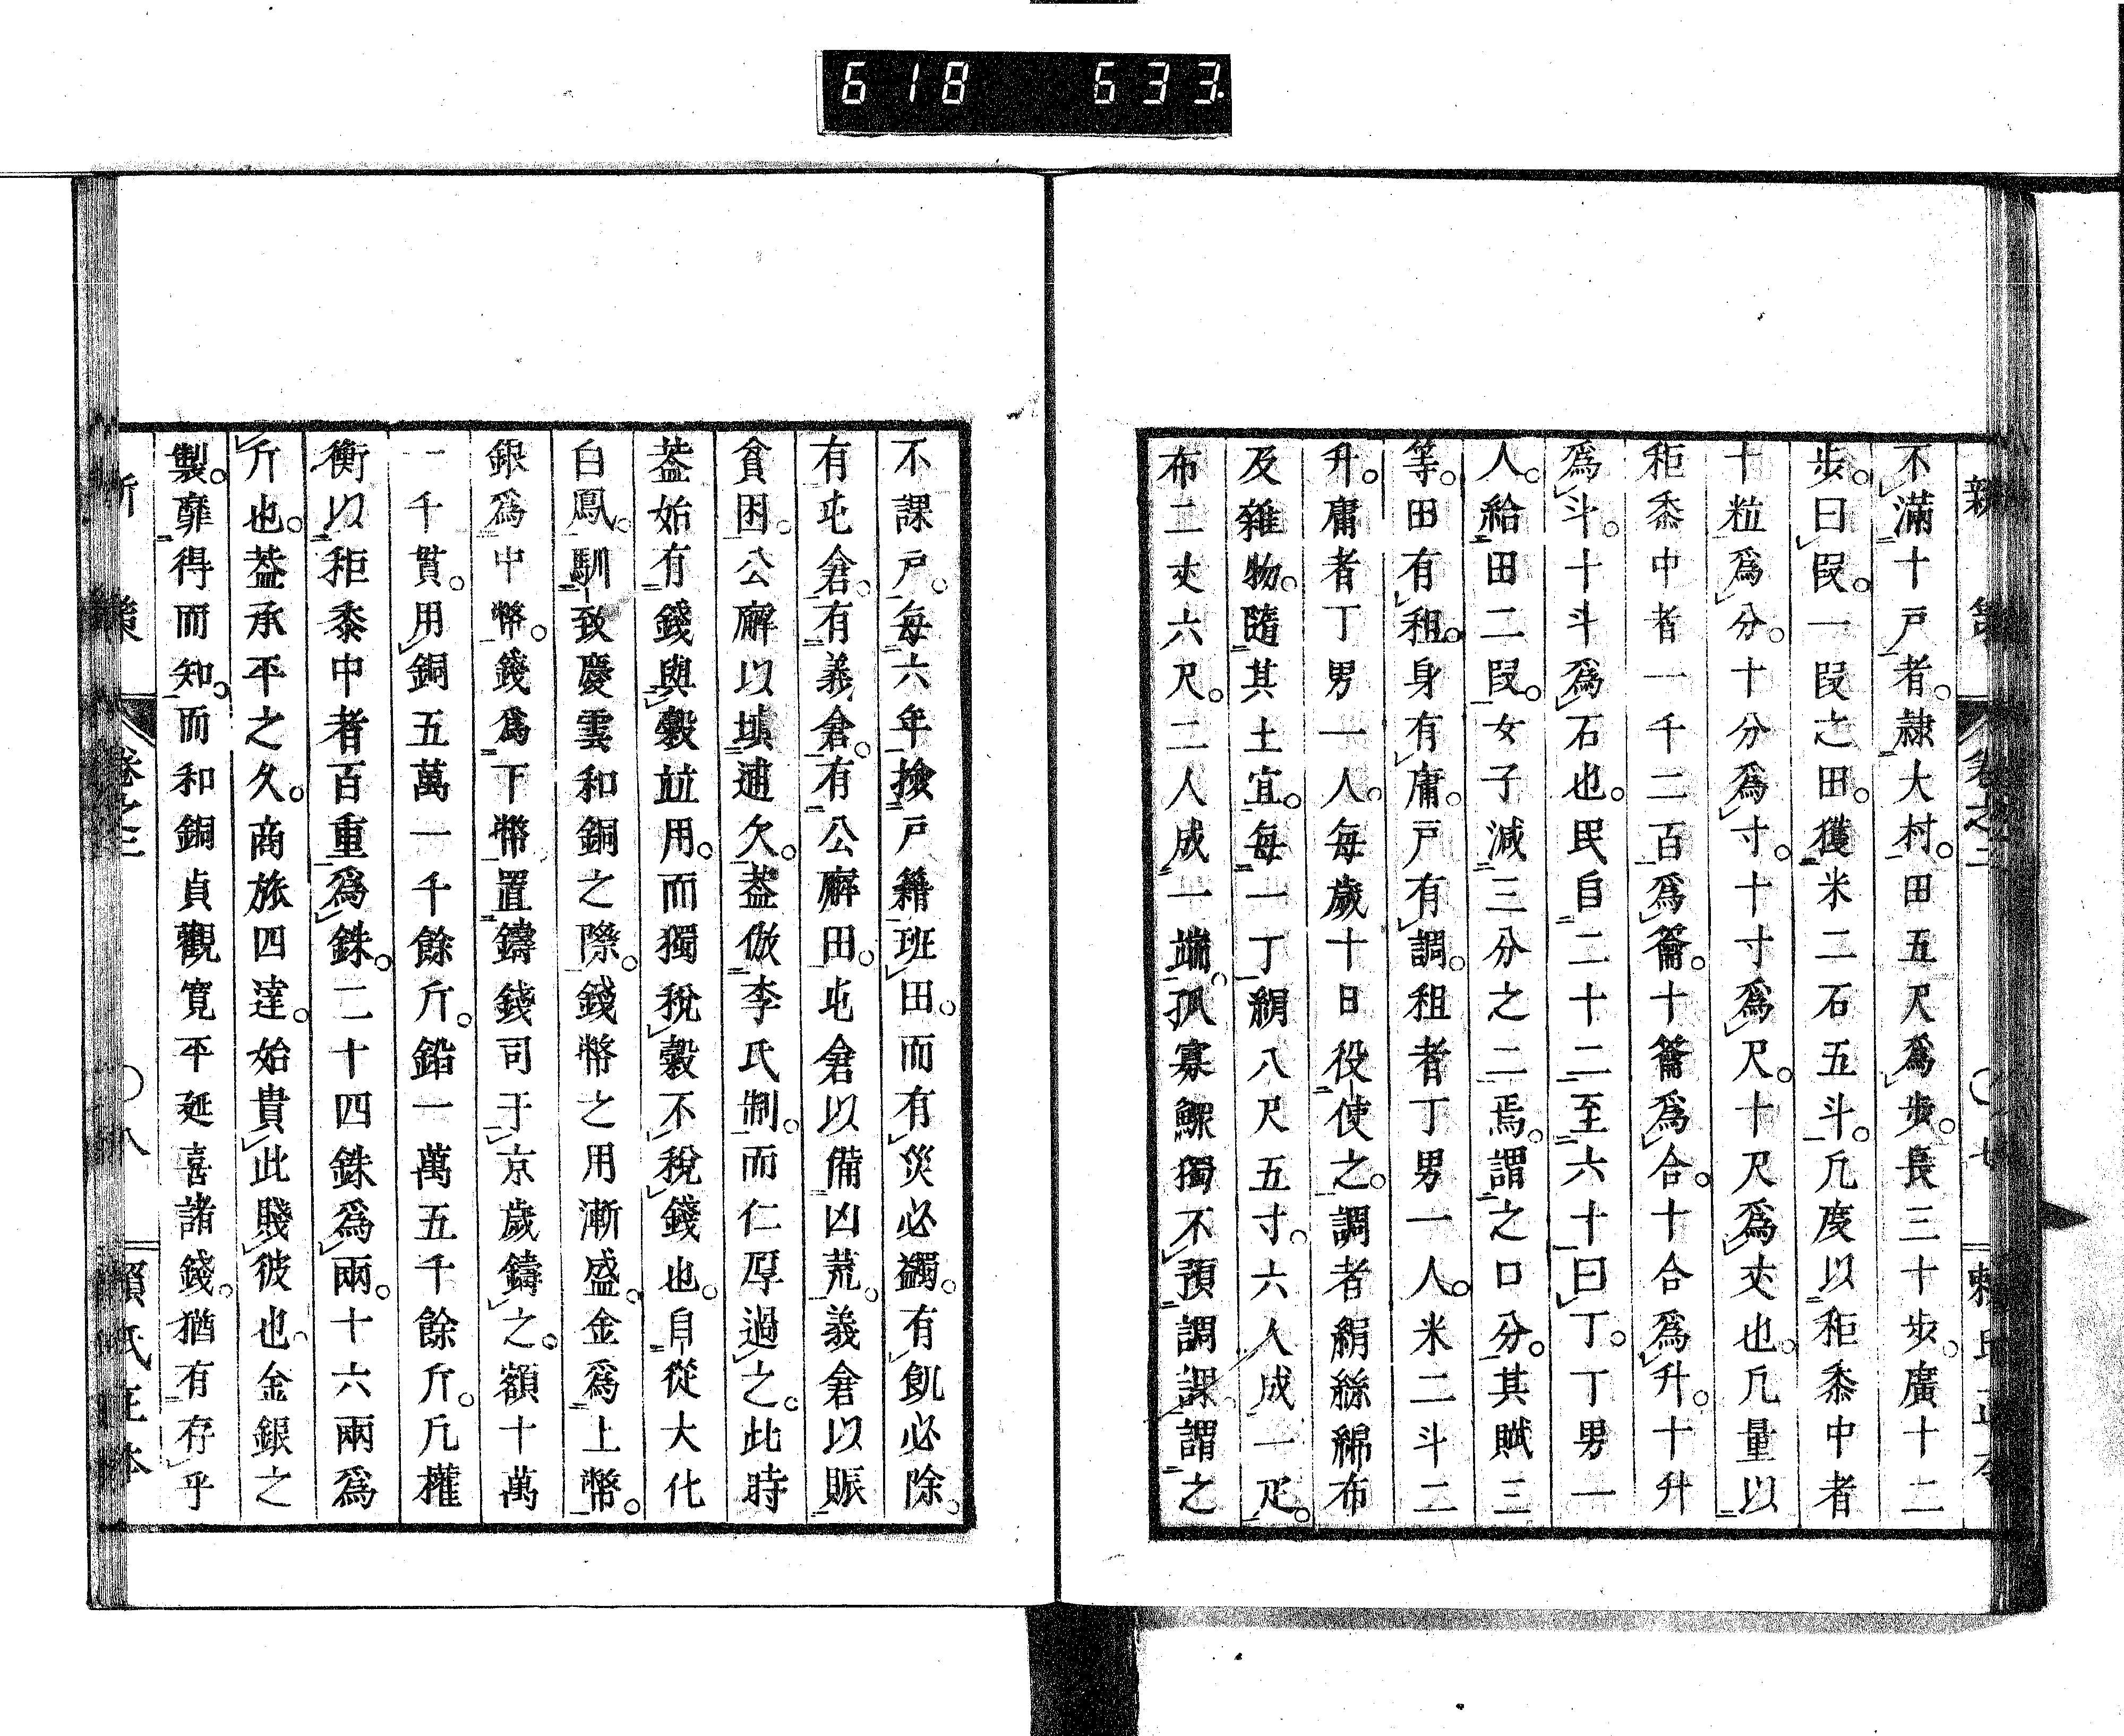 618 633.
新策 卷之三 〇七 賴氏正本
不滿十戶者。隷大村。田五尺爲步。長三十步。廣十二
步。曰段。一段之田。獲米二石五斗。凢度以秬黍中者
十粒爲分。十分爲寸。十寸爲尺。十尺爲丈也。凢量以
秬黍中者一千二百爲籥。十籥爲合。十合爲升。十升
爲斗。十斗爲石也。民自二十二至六十曰丁。丁男一
人。給田二段。女子減三分之二焉。謂之口分。其賦三
等。田有租。身有庸。戶有調。租者丁男一人。米二斗二
升。庸者丁男一人。每歲十日役使之。調者絹絲綿布
及雜物。隨其土宜。每一丁絹八尺五寸。六人成一疋。
布二丈六尺。二人成一端。孤寡鰥獨不預調課謂之
不課戶。每六年撿戶籍班田。而有災必蠲。有飢必除。
有屯倉。有義倉。有公廨田。屯倉以備凶荒。義倉以賑
貧困。公廨以塡逋欠。葢倣李氏制。而仁厚過之。此時
葢始有錢與穀竝用。而獨稅穀不稅錢也。自從大化
白鳳。馴致慶雲和銅之際。錢幣之用漸盛。金爲上幣。
銀爲中幣。錢爲下幣。置鑄錢司于京歲鑄之。額十萬
一千貫。用銅五萬一千餘斤。鉛一萬五千餘斤。凢權
衡以秬黍中者百重爲銖。二十四銖爲兩。十六兩爲
斤也。葢承平之久。商旅四達。始貴此賤彼也。金銀之
製。靡得而知。而和銅貞觀寬平延喜諸錢。猶有存乎
新策 卷之三 〇八 賴氏正本